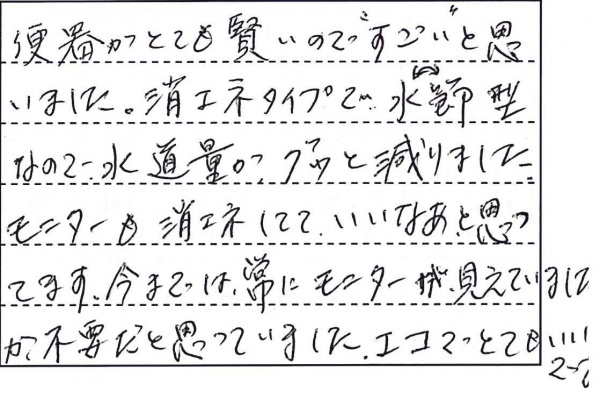 便器がとても賢いので"すごい"と思
いました。消エネタイプで、水節型
なので、水道量が、グッと減りました。
モニターも消エネしてて、いいなあと思っ
てます。今までは、常にモニターが、見えていました
が、不要だと思っていました。エコでとてもいい
です